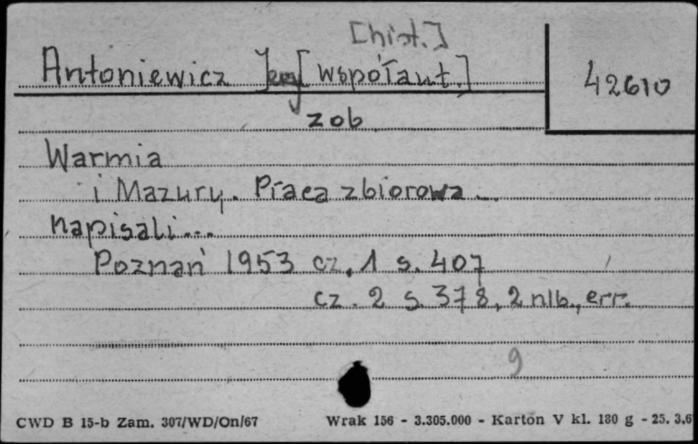 [hist.]
Antoniewicz Jerzy [współaut.]
42610
zob.
Warmia
i Mazury. Praca zbiorowa...
napisali...
Poznań 1953 cz. 1 s. 407
cz. 2 s. 378, 2 nlb., err.
9
CWD B 15-b Zam. 307/WD/On/67 Wrak 156 - 3.305.000 - Karton V kl. 180 g - 25. 3.6